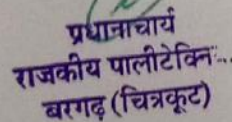 प्रधानाचार्य
राजकीय पालीटेक्नि...
बरगढ़ (चित्रकूट)